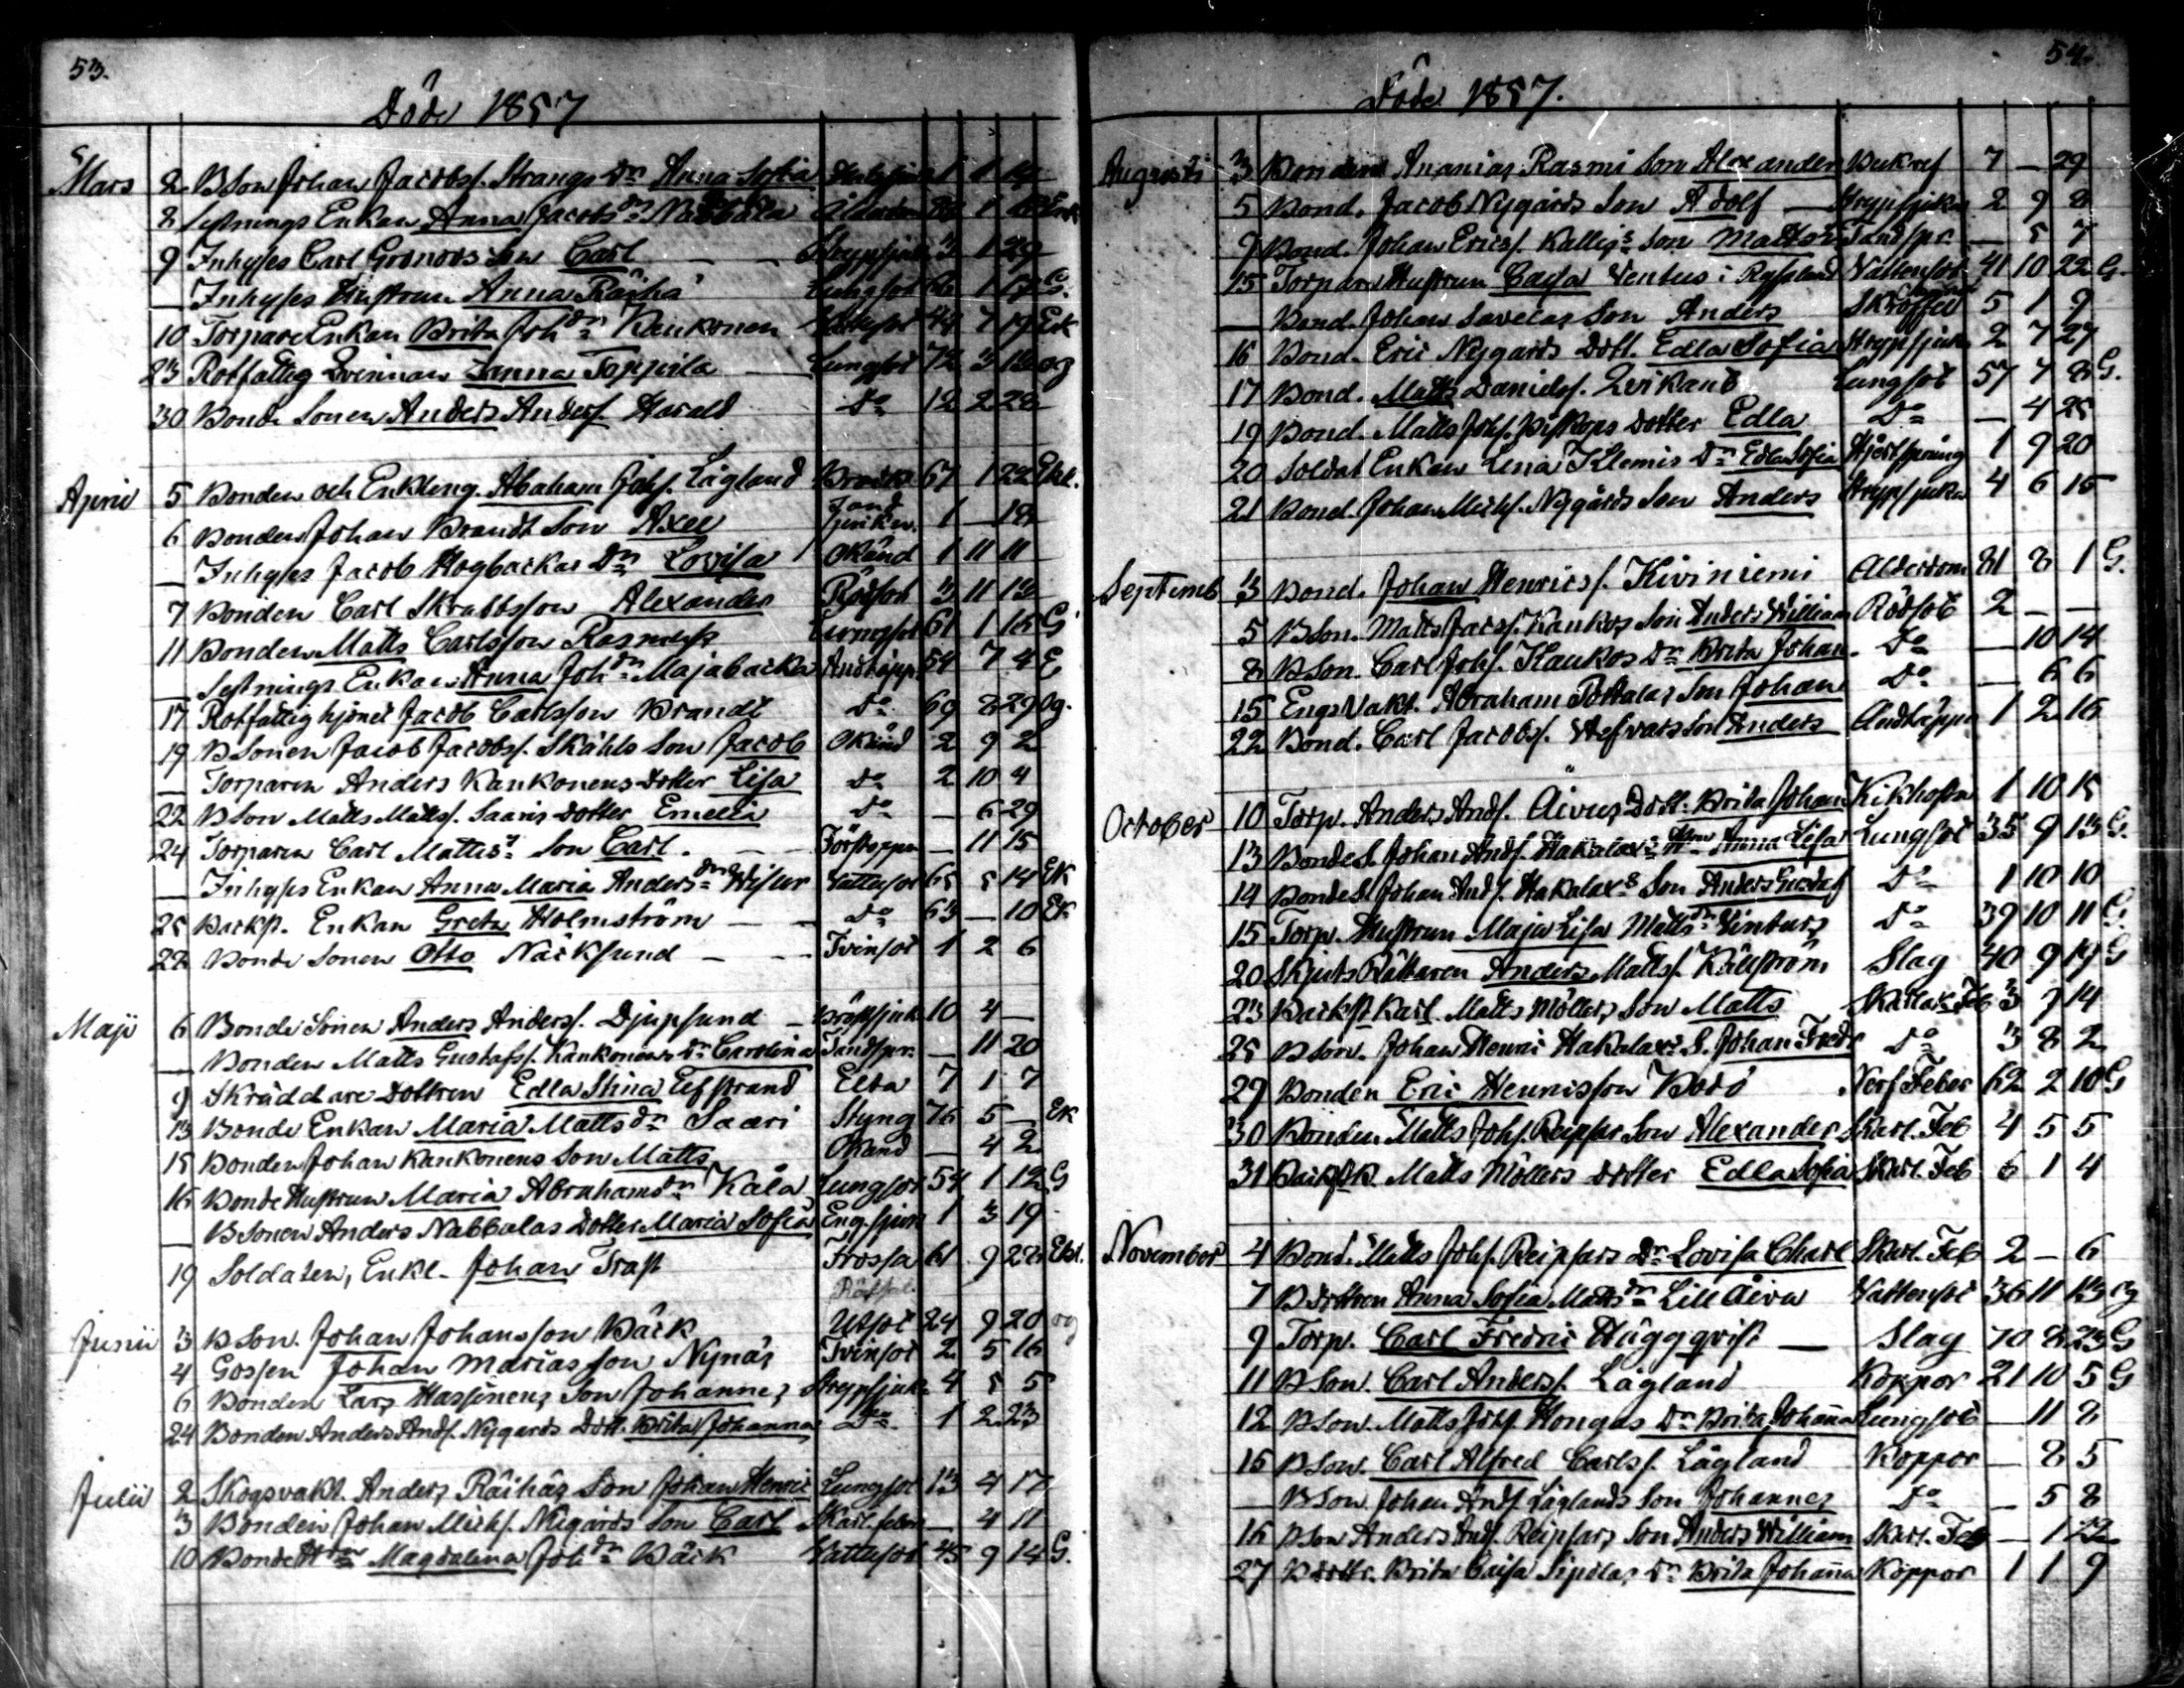 53.
Döde 1857
Mars 2 BSon Johan Jacobss. Strangs Dr Anna Sofia 1 1
8 Sytnings Enkan Anna Jacobsdr Nabbala Ålderdom 1
9 Inhyses Carl Gronovs Son Carl Strypsjuka 3 1 29
— Inhyses Hustrun Anna Räihä Lungsot 1 G.
10 Torpare Enkan Brita Johdr Kankonen 44 7 19 Ek
23 Rotfattig Qvinnan Sanna Toppila Lungsot 72 3 og
30 Bonde Sonen Anders Anderss. Harald Do 12 2 28
April 5 Bonden och Enkling Abraham Johs. Lågland 67 1 22 Ekl.
6 Bonden Johan Brandt Son Axel Tand 1 — 18
— Inhyses Jacob Hogbackas Dr Lovisa Okänd 1 11 11
7 Bonden Carl Skrabbsson Alexander Rödsot 3 11 13
11 Bonden Matts Carlsson Lungsot 61 1 16 G
— Sytnings Enkan Anna Johdr Majabacka Andtäppa 54 7 4 E
17 Rotfattighjonet Jacob Carlsson Brandt Do 69 8 29 og.
19 BSonen Jacob Jacobss. Skåhls Son Jacob Okänd 2 9 2
— Torparen Anders Kankonens Dotter Lisa Do 2 10 4
22 BSon Matts Mattss. Saaris Dotter Emelia Do — 6 29
24 Torparen Carl Son Carl. Förstoppn — 11 15
— Inhyses Enkan Anna Maria Andersdr Vattusot 65 5 14 Ek
25 Backst. Enkan Greta Holmström — Do 63 — 10 Ek
28 Bonde Sonen Otto Näcksund — Tvinsot 1 2 6
Maji 6 Bonde Sonen Anders Anderss. Djupsund — Bröstsjuka 10 4 —
— Bonden Matts Gustafss. Kankonens Dr Carolina Tandspr. — 11 20
9 Skräddare Dottren Edla Stina Elfstrand Elta 7 1 7
13 Bonde Enkan Maria Mattsdr Saari Styng 76 5 — Ek
15 Bonden Johan Kankonens Son Matts Okänd — 4 2
16 Bonde Hustrun Maria Abrahamsdr Kåla Lungsot 54 1 12 G
— BSonen Anders Nabbalas Dotter Maria Sofia Eng. sjuk 1 3 19
19 Soldaten, Enkl. Johan Trast Frossa 61 9 22 Ekl.
Junii 3 BSon. Johan Johansson Bäck Utsot 24 9 20 og
4 Gossen Johan Mariasson Nynäs Tvinsot 2 5 16
6 Bonden Lars Hassinens Son Johannes Strypsjuka 4 5 5
24 Bonden Anders Ands. Nygårds Dott. Brita Johanna Do 1 2 23
Julii 2 Skogsvakt. Anders Räihäs Son Johan Henric Lungsot 13 4 17
3 Bonden Johan Michs. Nygårds Son Carl Skarl. feber — 4 11
10 Bonde Magdalena Johdr Bäck Vattusot 45 9 14 G.
54.
Döde 1857.
Augusti 3 Bonden Ananias Rasmi Son Alexander 7 — 29
5 Bond. Jacob Nygårds Son Adolf — Strypsjuka 2 9 8
7 Bond. Johan Ericss. Kallis Son Matts Tandspr. — 5 7
15 Torpare Hustrun Caisa Ventus i Ryssland Vattensot 41 10 22 G.
— Bond. Johan Savelas Son Anders Skroffel 5 1 9
16 Bond. Eric Nygårds Dott. Edla Sofia Strypsjuka 2 7 27
17 Bond. Matts Danielss. Lungsot 57 7 8 G.
19 Bond. Matts Johs. Biskops Dotter Edla Do — 4 25
20 Soldat Enkan Lena Klemis Dr Edla Sofia Hjertsprång 1 9 20
21 Bond. Johan Michs. Nygårds Son Anders Strypsjuka 4 6 15
Septemb 3 Bond. Johan Henricss. Kiviniemi Alderdom 81 8 1 G.
5 BSon. Matts Jacss. Kankos Son Anders William Rödsot 2 — —
8 BSon. Carl Johs. Kaukos Dr Brita Johan. Do — 10 14
15 EngsVakt. Abraham Pottalas Son Johan Do — 6 6
22 Bond. Carl Jacobss. Son Anders Andtäppa 1 2 16
October 10 Torp. Anders Ands. Åivus Dott. Brita Johan Kikhosta 1 10 15
13 BondeS. Johan Ands. Hakalax Anna Lisa Lungsot 35 9 13 G.
14 BondeS. Johan Ands. Hakalaxs Son Anders Gustaf Do 1 10 10
15 Torp. Hustrun Maja Lisa Mattsdr Vinturs Do 39 10 11 G.
20 Skjuts Rättaren Anders Mattss. Källström Slag 40 9 19 G
23 Backst Karl Matts Möllers Son Matts Skarlak. Feb 3 7 14
25 BSon. Johan Henric Hakalaxs S. Johan Fredr Do 3 8 2
29 Bonden Eric Hennisson Bodö Nerf Feber 62 2 10 G
30 Bonden Matts Johs. Reipars Son Alexander Skarl. Feb 4 5 5
31 Matts Möllers Dotter Edla Sofia Skarl. Feb 6 1 4
November 4 Bond. Matts Johs. Reipsars Dr Lovisa Charl Skarl. Feb 2 — 6
7 BDottren Anna Sofia Mattsdr Lill Åiva Vattensot 36 11 13 og
9 Torp. Carl Fredric Häggqvist — Slag 70 8 23 G
11 BSon. Carl Anderss. Lågland Koppor 21 10 5 G
12 BSon. Matts Johs. Hongas Dr Brita Johaña Lungsot — 11 8
15 BSon. Carl Alfred Carlss. Lågland Koppor — 8 5
— BSon Johan Ands. Låglands Son Johannes Do — 5 8
16 BSon Anders Ands. Reipsars Son Anders William Skarl. Feb — 1 22
27 BDottr. Brita Caisa Sipolas Dr Brita Johaña Koppor 1 1 9